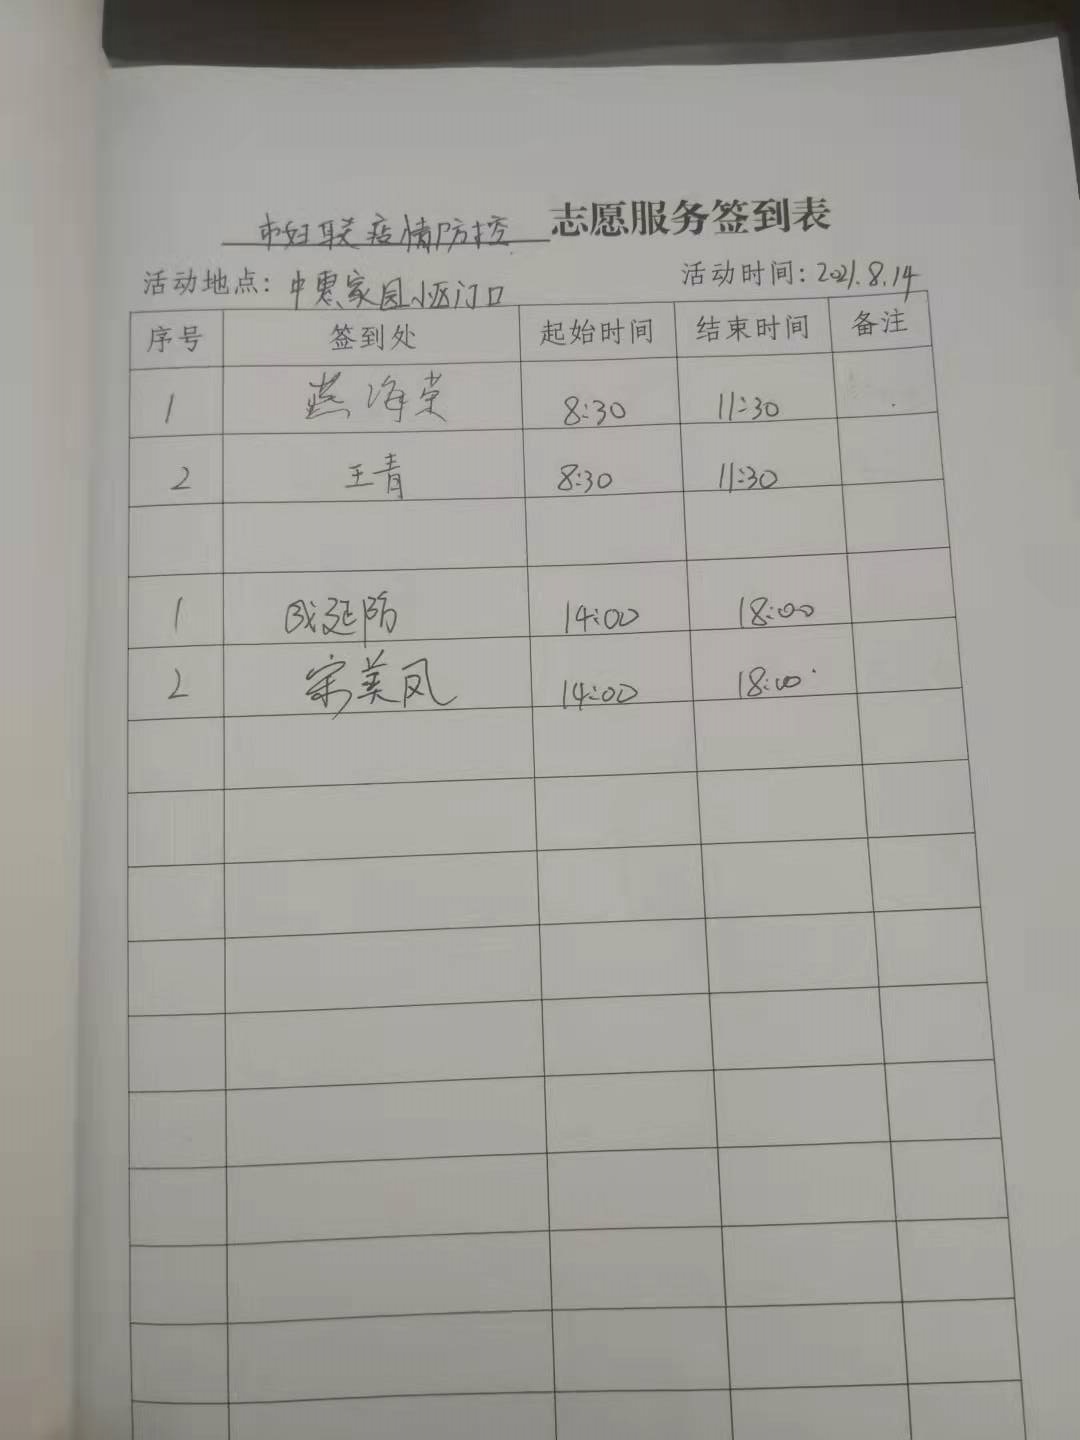 市妇联疫情防控 志愿服务签到表
活动地点：中惠家园小区门口 活动时间：2021.8.14
序号 签到处 起始时间 结束时间 备注
1 燕海荣 8:30 11:30
2 王青 8:30 11:30
1 延防 14:00 18:00
2 宋美凤 14:00 18:00